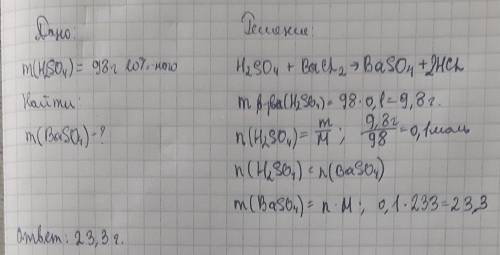 Дано:
m(H₂SO₄) = 98г 10%-ного
Найти:
m(BaSO₄)-?
Решение:
H₂SO₄ + BaCl₂ → BaSO₄ + 2HCl
m в-ва (H₂SO₄) = 98·0,1 = 9,8г.
n(H₂SO₄) = m/M ; 9,8г/98 = 0,1моль
n(H₂SO₄) = n(BaSO₄)
m(BaSO₄) = n·M ; 0,1·233 = 23,3
Ответ: 23,3г.